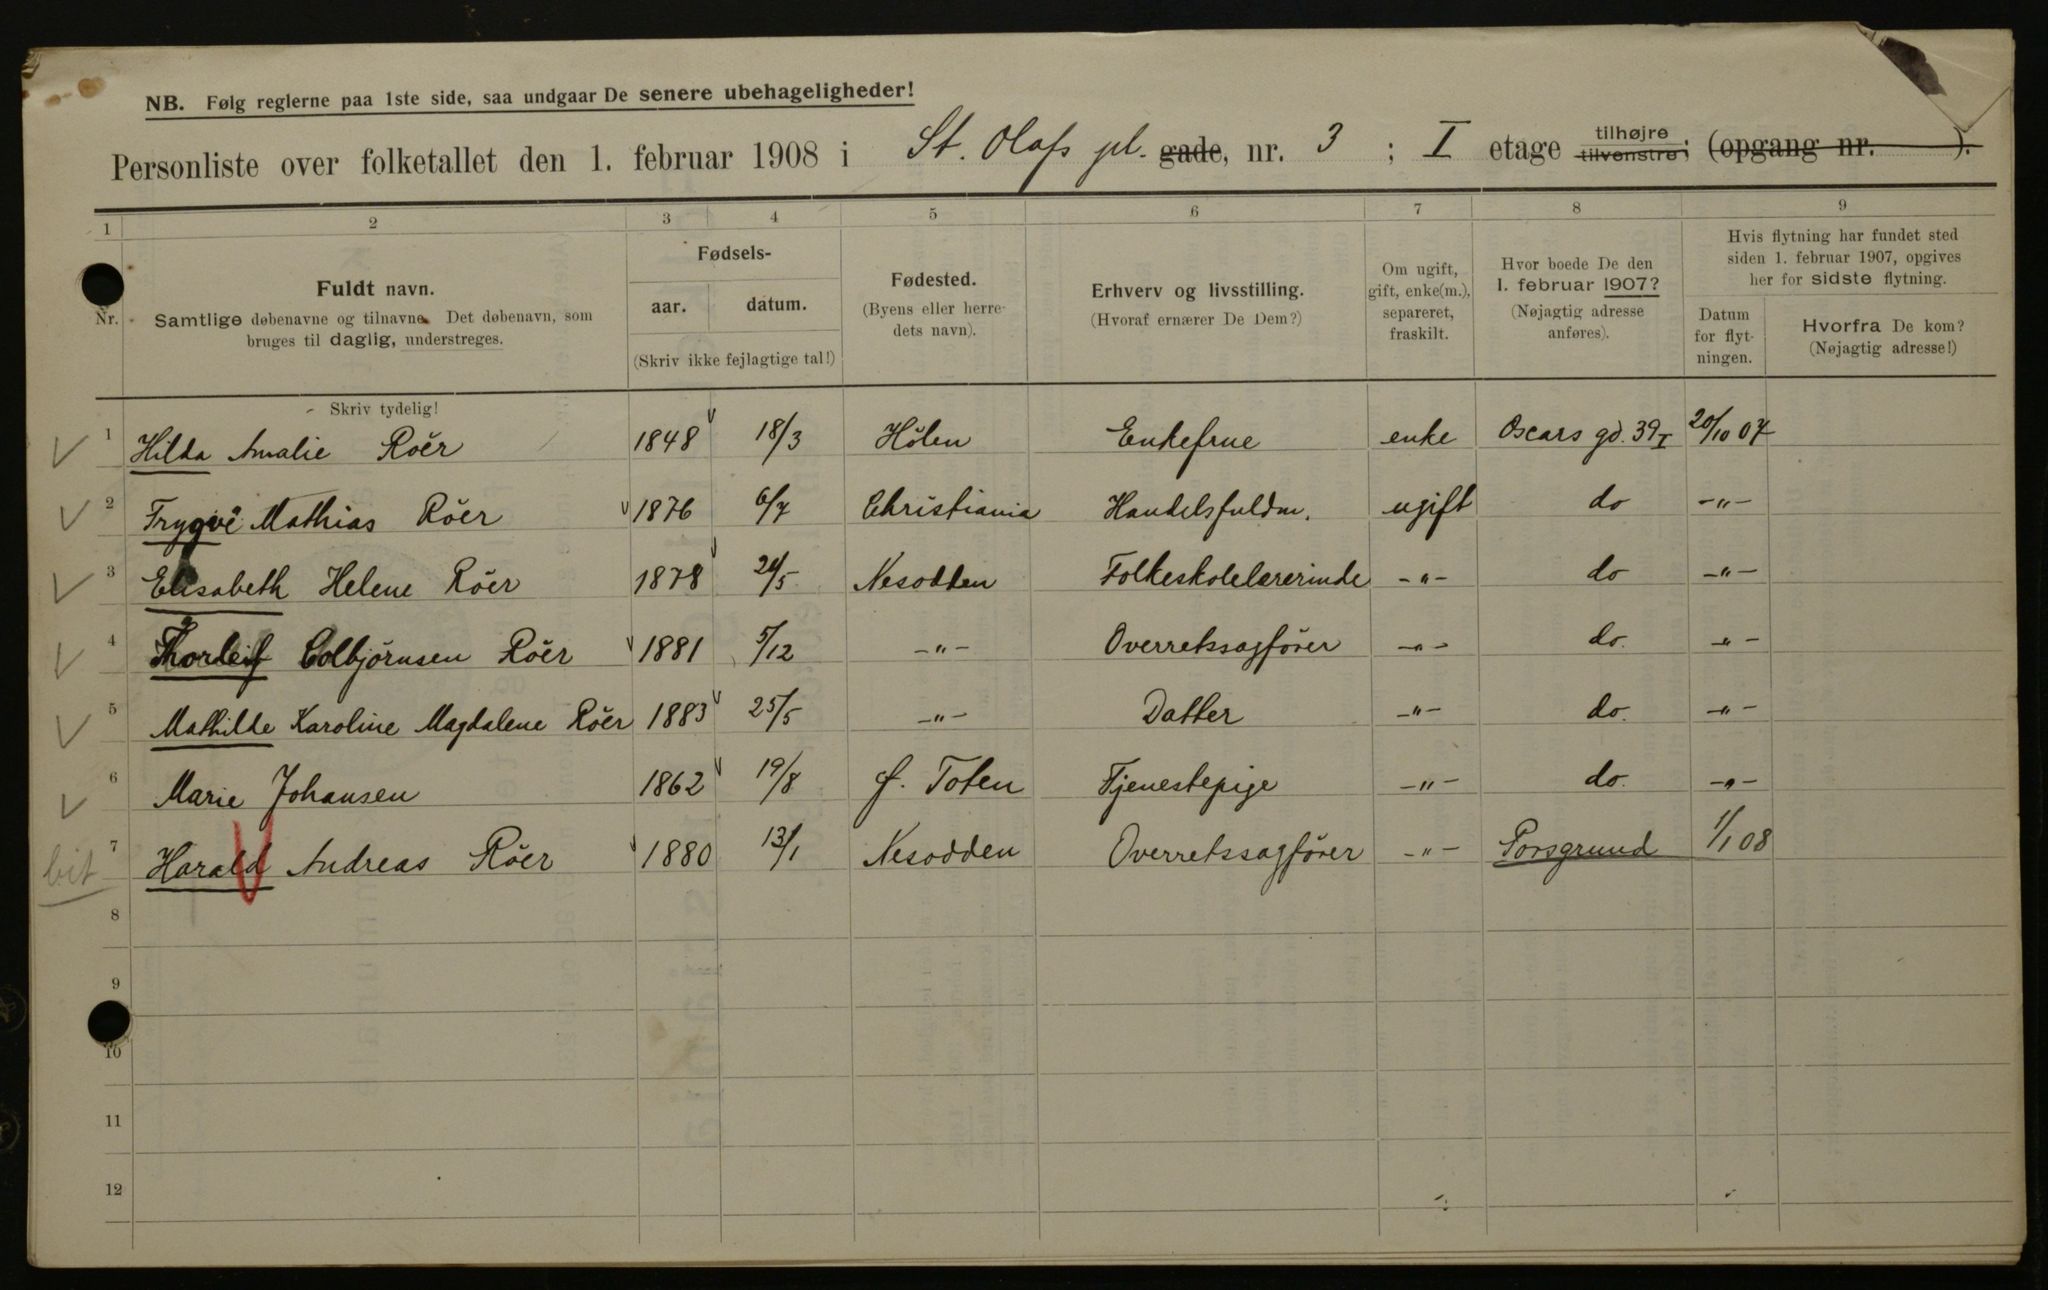 NB. Følg reglerne paa 1ste side, saa undgaar De senere ubehageligheder!
Personliste over folketallet den 1. februar 1908 i St. Olafs pl. gade, nr. 3 ; I etage tilhøjre tilvenstre; (opgang nr. ).
1 2 3 4 5 6 7 8 9
Nr.
Fuldt navn.
Samtlige døbenavne og tilnavne. Det døbenavn, som
bruges til daglig, understreges.
Fødsels-
aar. datum.
(Skriv ikke fejlagtige tal!)
Fødested.
(Byens eller herre-
dets navn).
Erhverv og livsstilling.
(Hvoraf ernærer De Dem?)
Om ugift,
gift, enke(m.),
separeret,
fraskilt.
Hvor boede De den
1. februar 1907?
(Nøjagtig adresse
anføres).
Hvis flytning har fundet sted
siden 1. februar 1907, opgives
her for sidste flytning.
Datum
for flyt-
ningen.
Hvorfra De kom?
(Nøjagtig adresse!)
Skriv tydelig!
1 Hilda Amalie Röer 1848 18/3 Hölen Enkefrue enke Oscars gd. 39 I 20/10 07
2 Trygve Mathias Röer 1876 6/7 Christiania Handelsfuldm. ugift do -"-
3 Elisabeth Helene Röer 1878 Nesodden Folkeskolelærerinde -"- do -"-
4 Thorleif Colbjörnsen Röer 1881 5/12 -"- Overretssagförer -"- do. -"-
5 Mathilde Karoline Magdalene Röer 1883 25/5 -"- Datter -"- do. -"-
6 Marie Johansen 1862 19/8 Toten Tjenestepige -"- do. -"-
7 Harald Andreas Röer 1880 13/1 Nesodden Overretssagförer -"- Porsgrund 1/1 08
8
9
10
11
12